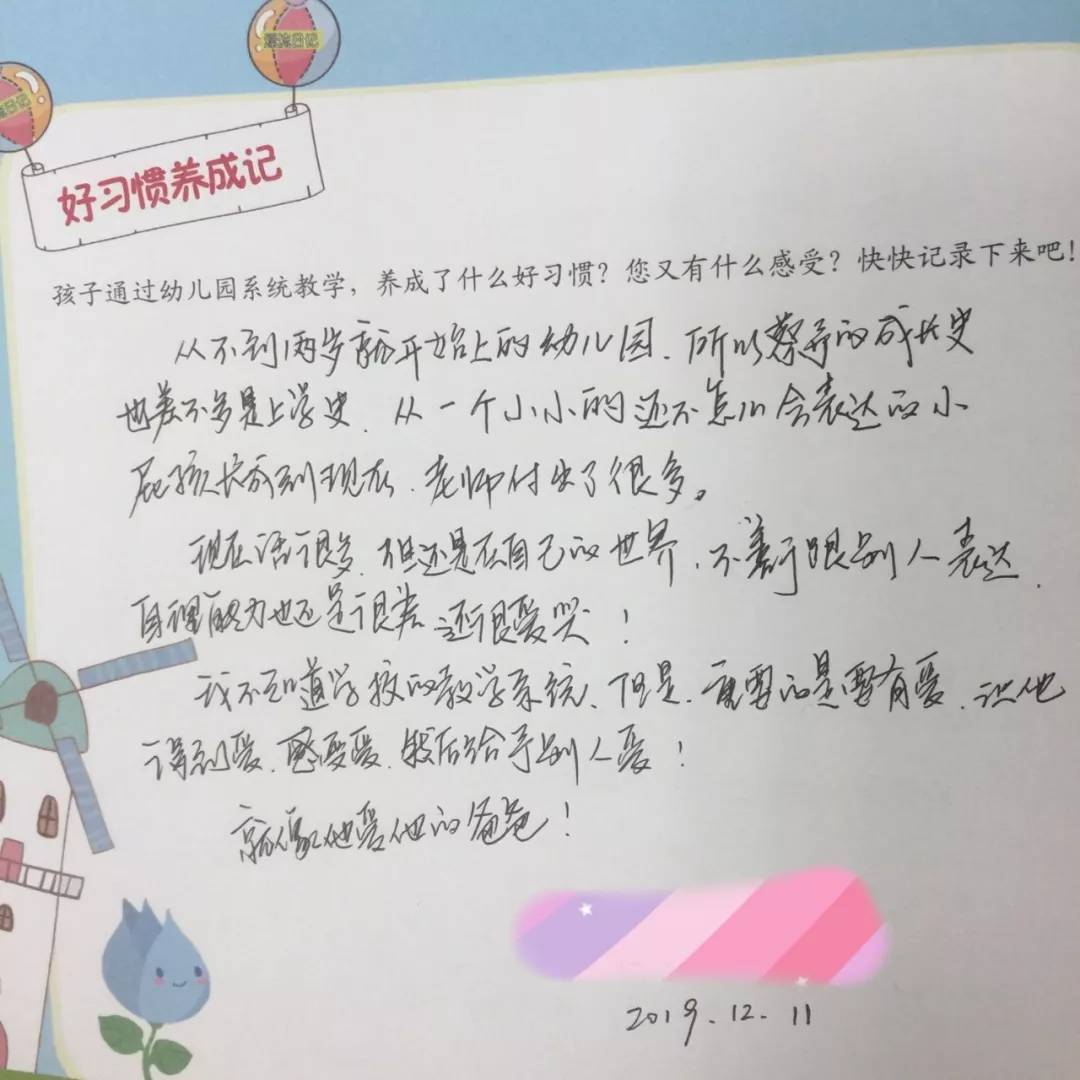 好习惯养成记
孩子通过幼儿园系统教学，养成了什么好习惯？您又有什么感受？快快记录下来吧！
从不到两岁就开始上的幼儿园、所以的成长史
也差不多是上学史、从一个小小的还不怎么会表达的小
屁孩长成到现在、老师付出了很多。
现在话很多、但还是在自己的世界、不善于跟别人表达、
自理能力也还是很差、还很爱哭！
我不知道学校的教学系统、但是、重要的是要有爱、让他
得到爱、感受爱、然后给予别人爱！
就像他爱他的爸爸！
2019.12.11